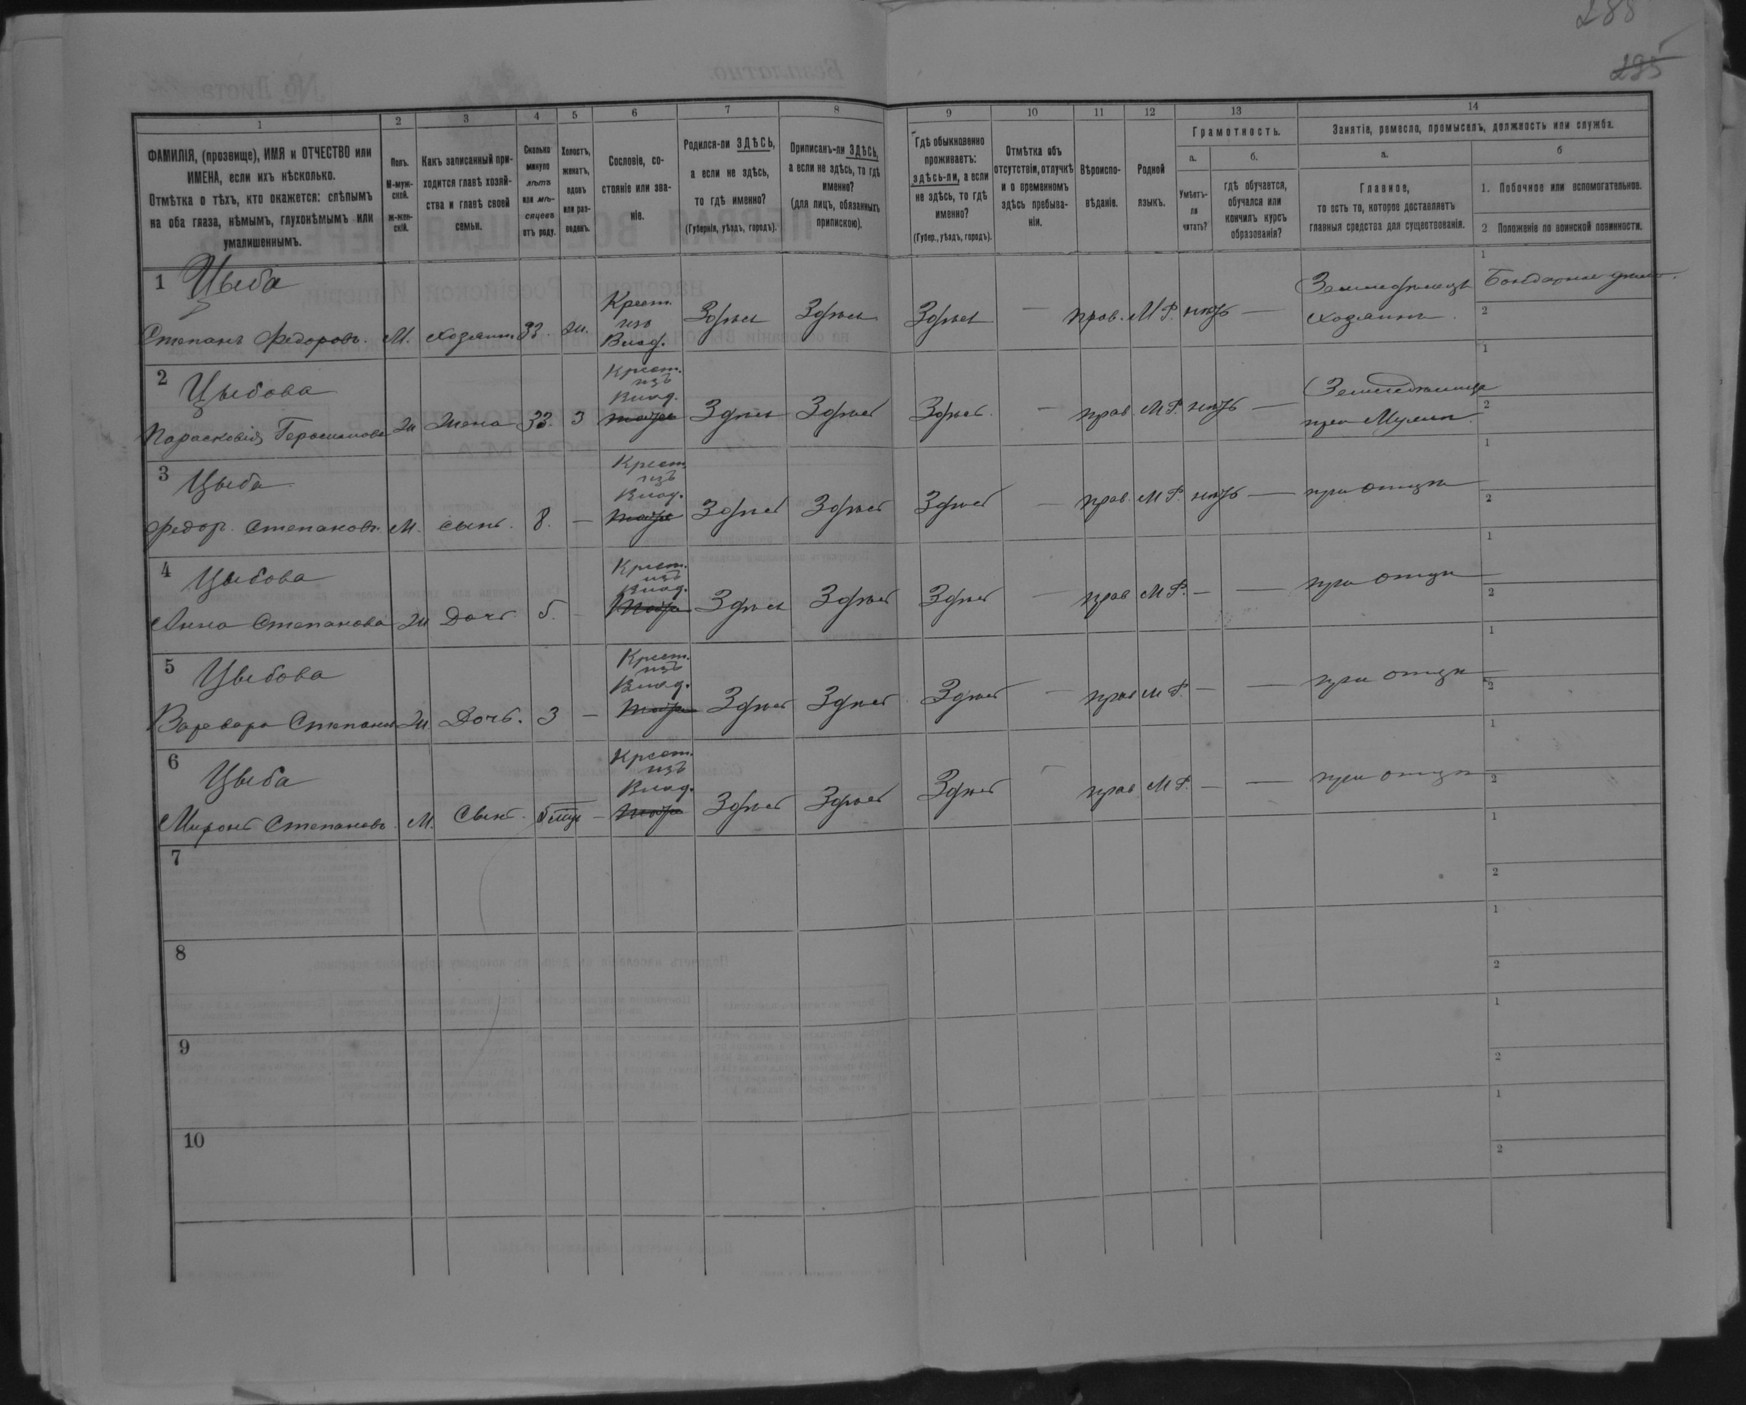 288
295
1 2 3 4 5 6 7 8 9 10 11 12 13 14
ФАМИЛІЯ, (прозвище), ИМЯ и ОТЧЕСТВО или ИМЕНА, если ихъ нѣсколько.
Отмѣтка о тѣхъ, кто окажется: слѣпымъ на оба глаза, нѣмымъ, глухонѣмымъ или умалишеннымъ.
Полъ.
М-муж-
ской.
Ж-жен-
скій.
Какъ записанный при-
ходится главѣ хозяй-
ства и главѣ своей
семьи.
Сколько
минуло
лѣтъ
или мѣ-
сяцевъ
отъ роду.
Холостъ,
женатъ,
вдовъ
или раз-
веденъ.
Сословіе, со-
стояніе или зва-
ніе.
Родился-ли ЗДѢСЬ,
а если не здѣсь,
то гдѣ именно?
(Губернія, уѣздъ, городъ).
Приписанъ-ли ЗДѢСЬ,
а если не здѣсь, то гдѣ
именно?
(для лицъ, обязанныхъ
припискою).
Гдѣ обыкновенно
проживаетъ:
здѣсь-ли, а если
не здѣсь, то гдѣ
именно?
(Губер., уѣздъ, городъ).
Отмѣтка объ
отсутствіи, отлучкѣ
и о временномъ
здѣсь пребыва-
ніи.
Вѣроиспо-
вѣданіе.
Родной
языкъ.
Грамотность.
а.
Умѣетъ-
ли
читать?
б.
гдѣ обучается,
обучался или
кончилъ курсъ
образованія?
Занятія, ремесло, промыселъ, должность или служба.
а.
Главное,
то есть то, которое доставляетъ
главныя средства для существованія.
б
1. Побочное или вспомогательное.
2 Положеніе по воинской повинности.
1 Цыба
Степанъ Федоровъ. М. хозяинъ 33 ж. Крест. изъ Влад. Здѣсь Здѣсь Здѣсь — прав. М.Р. нѣтъ — Земледѣлецъ хозяинъ
1
2
2 Цыбова
Парасковія Герасимова Ж Жена 32. З Крест. изъ Влад. Здѣсь Здѣсь Здѣсь — прав М.Р. нѣтъ — Земледѣлица при Мужѣ
1
2
3 Цыба
Федор. Степановъ М. сынъ. 8. — Крест изъ Влад. Здѣсь Здѣсь Здѣсь — прав. М.Р. нѣтъ — при отцѣ
1
2
4 Цыбова
Анна Степанова Ж Дочь 5. — Крест. изъ Влад. Здѣсь Здѣсь Здѣсь — прав М.Р. — — при отцѣ
1
2
5 Цыбова
Варвара Степан Ж Дочь. 3 — Крест. изъ Влад. Здѣсь Здѣсь Здѣсь — прав М.Р. — — при отцѣ
1
2
6 Цыба
Миронъ Степановъ М. Сынъ. — Крест. изъ Влад. Здѣсь Здѣсь Здѣсь — прав М.Р. — — при отцѣ
1
2
7
1
2
8
1
2
9
1
2
10
1
2